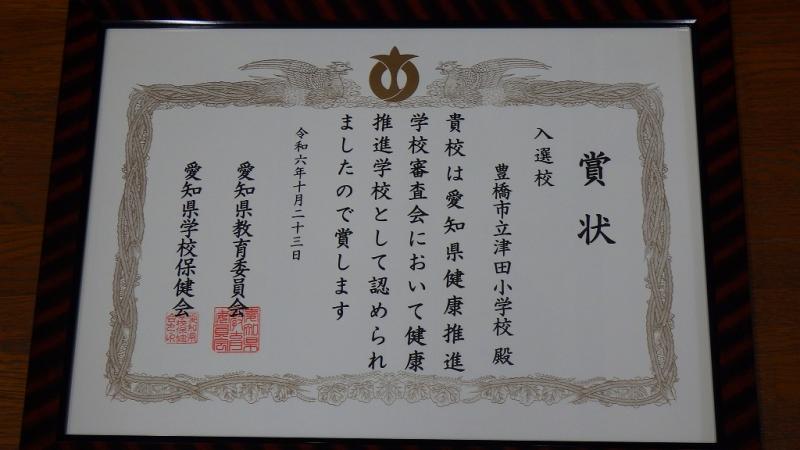 賞状
入選校
豊橋市立津田小学校 殿
貴校は愛知県健康推進
学校審査会において健康
推進学校として認められ
ましたので賞します
令和六年十月二十三日
愛知県教育委員会
愛知県学校保健会